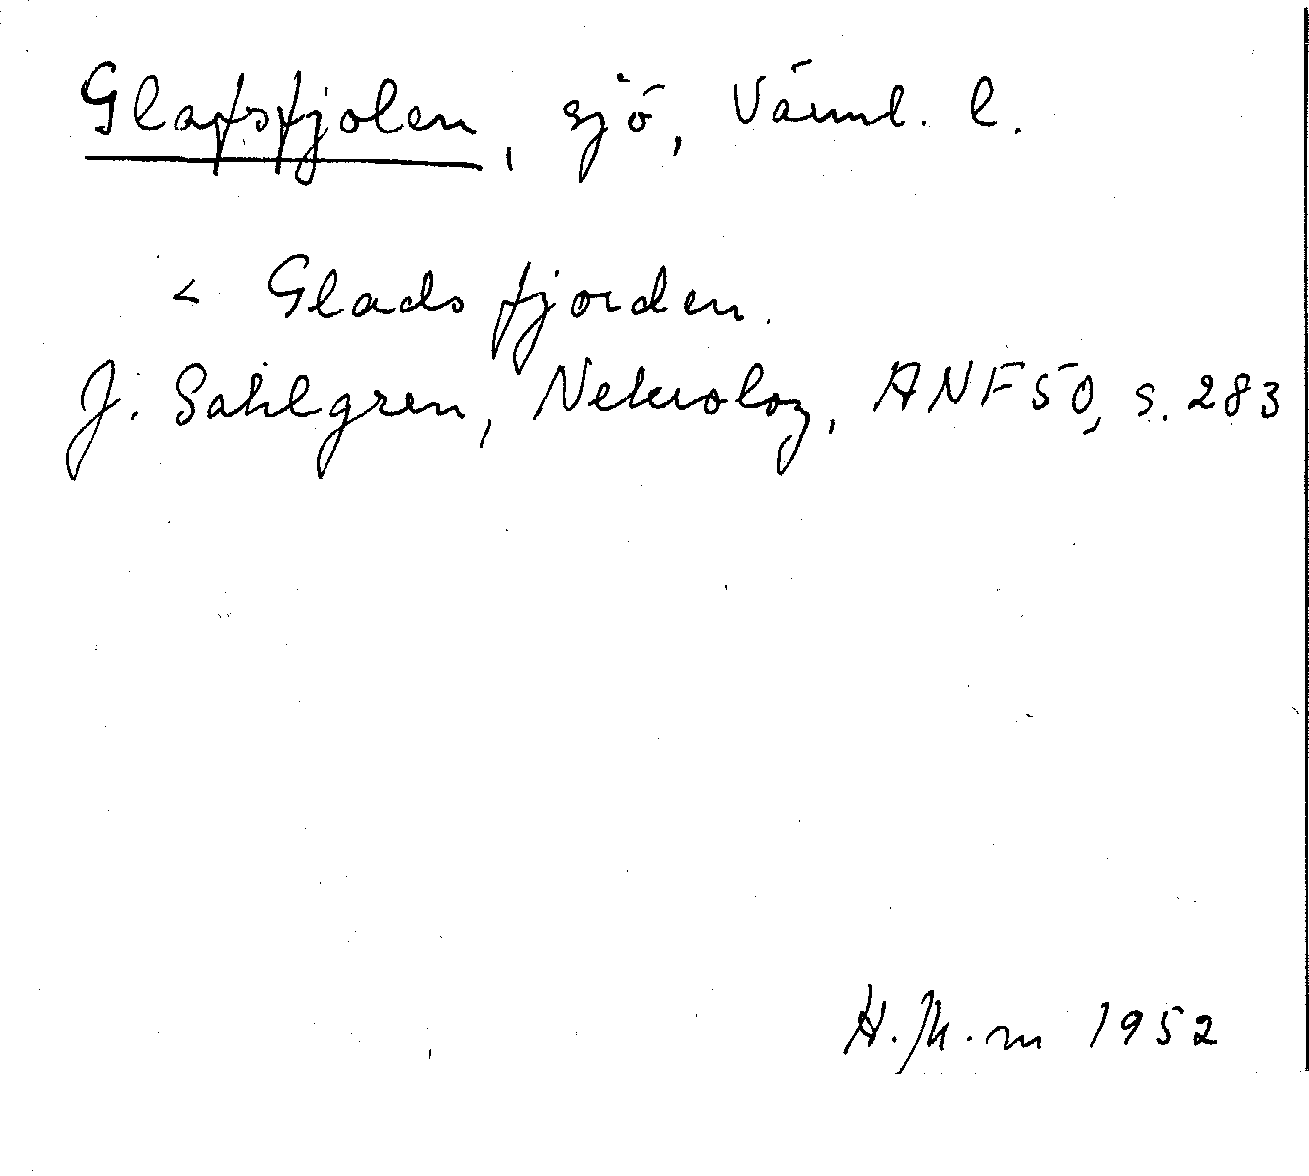 Glafsfjolen, sjö, Värml. l.
< Gladsfjorden.
J. Sahlgren, Nekrolog, ANF 50, s. 283
H. M.-m 1952